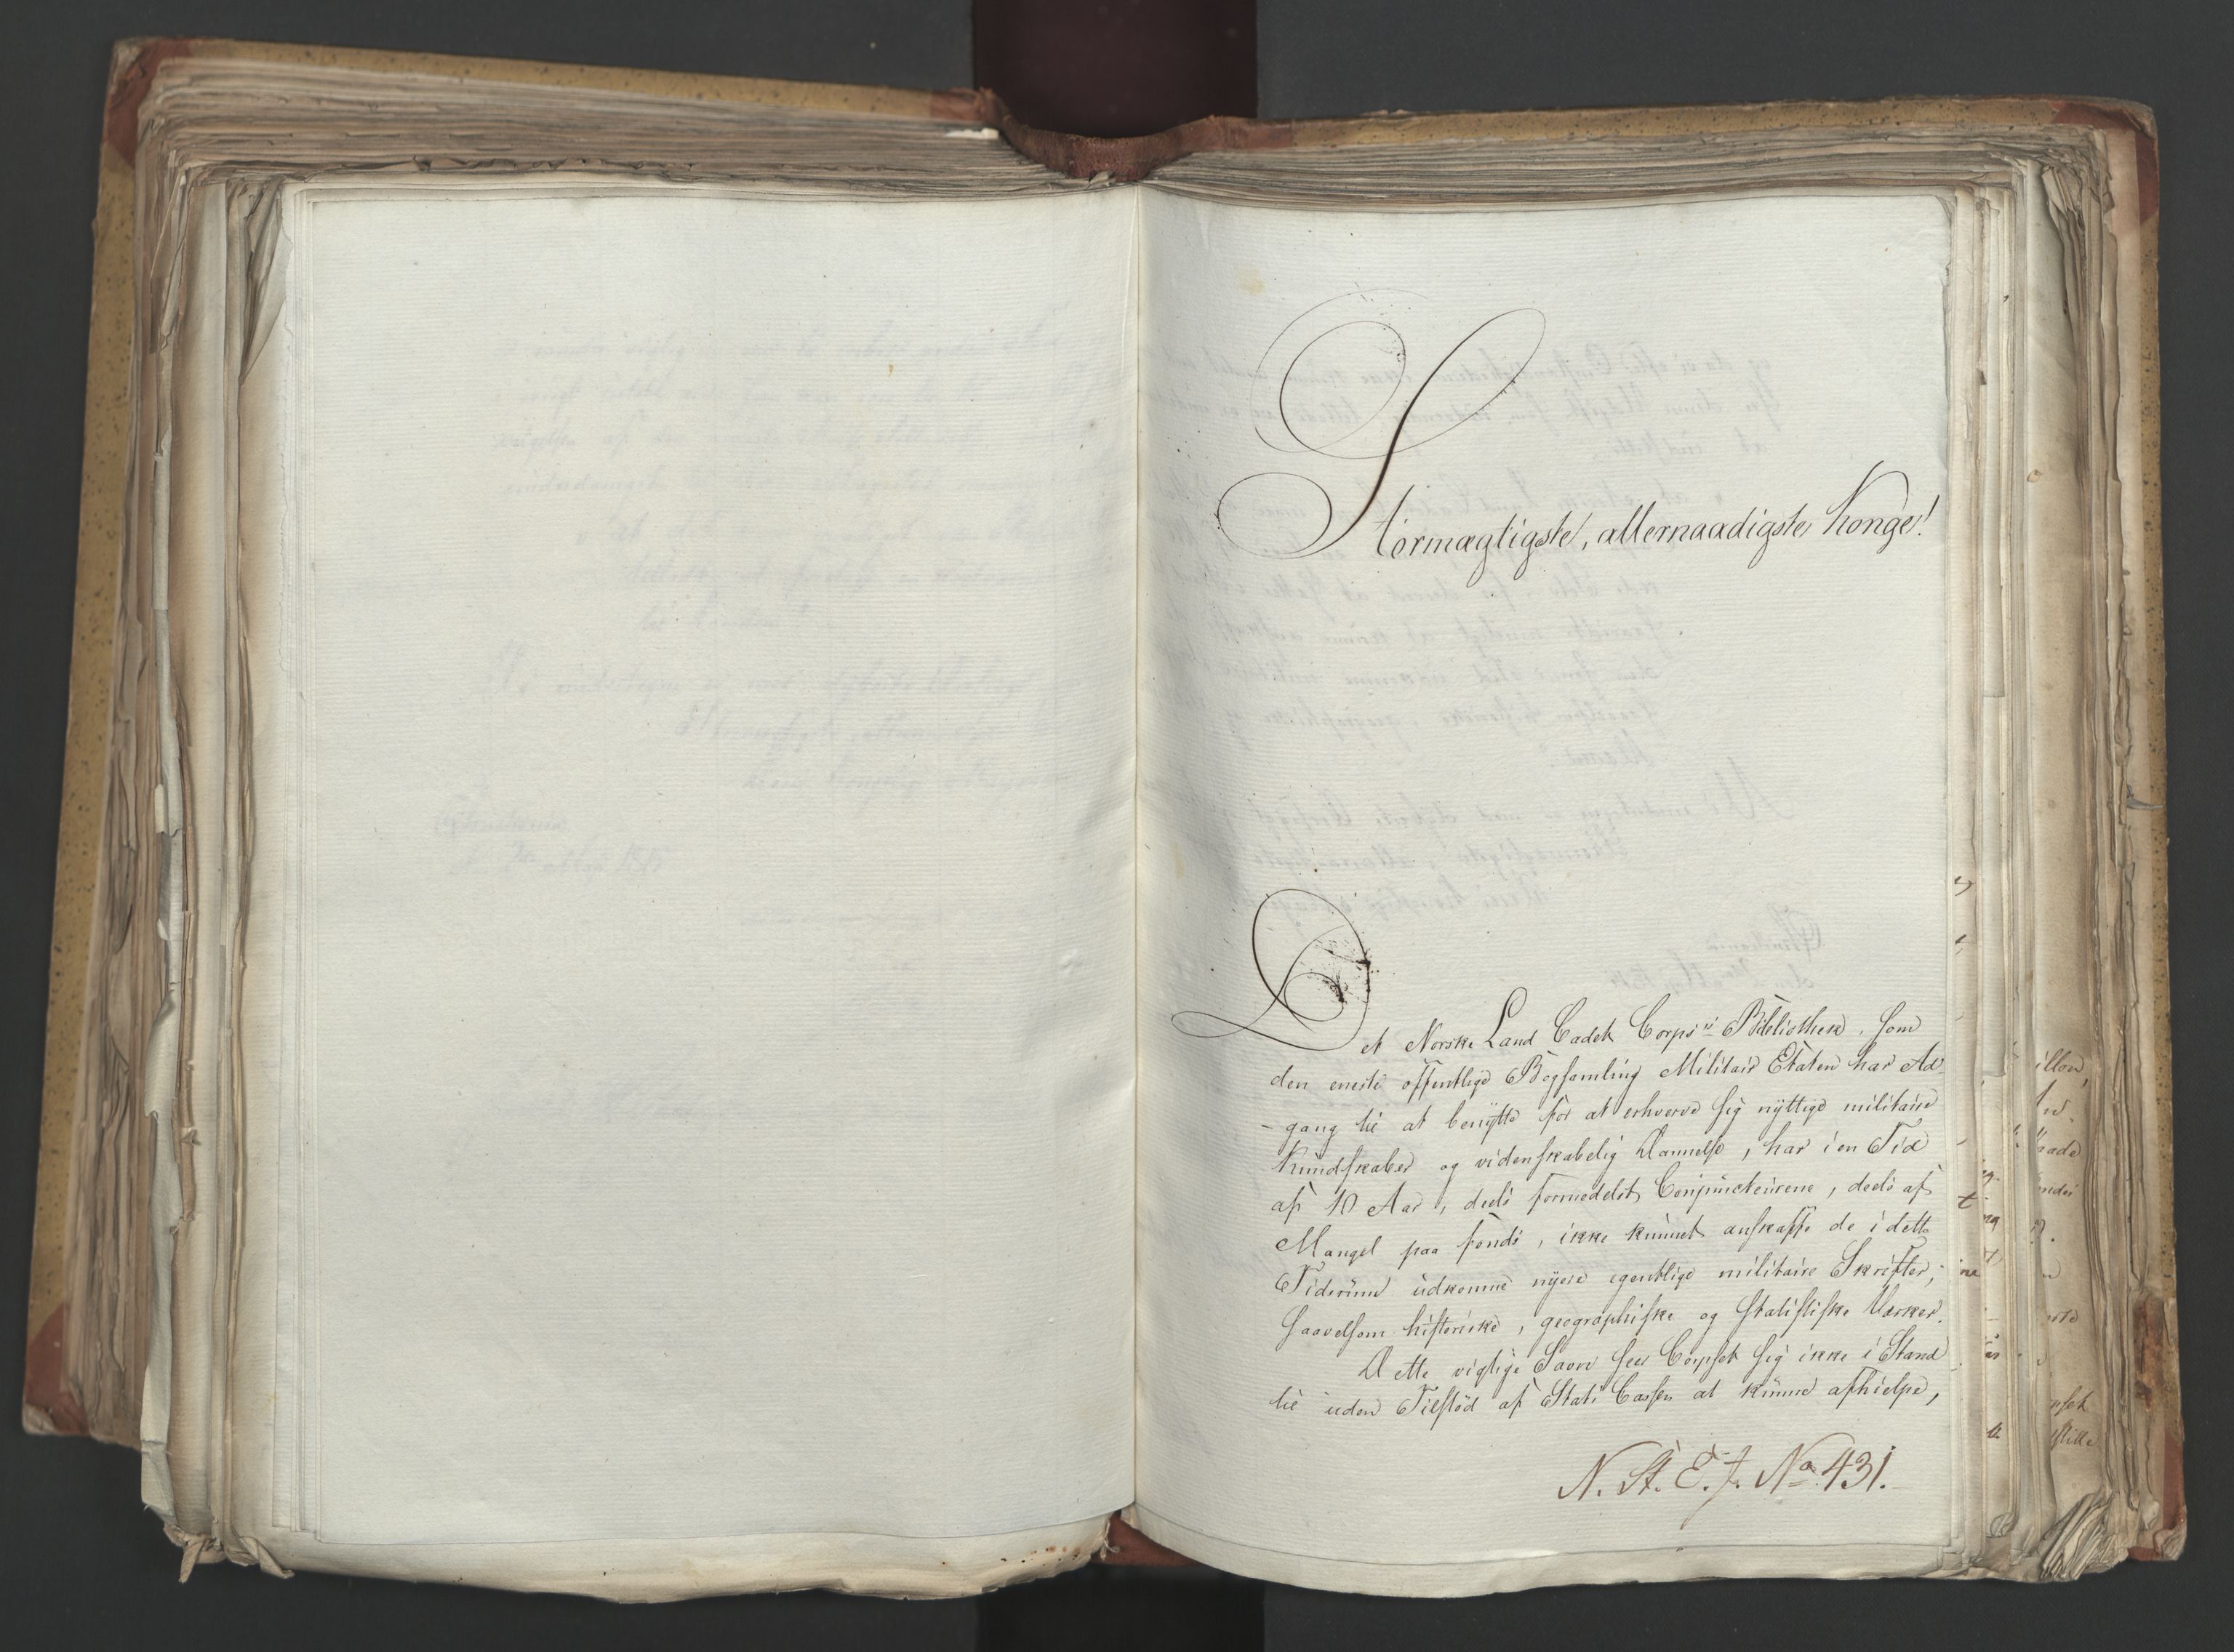 Stormægtigste, allernaadigste Konge!
Det Norske Land Cadet Corps's Bibliothek, som
den eneste offentlige Bogsamling Militair Etaten har Ad-
-gang til at benytte for at erhverve sig nyttige militaire
Kundskaber og videnskabelig Dannelse, har i en Tid
af 10 Aar, deels formedelst Conjuncteurene, deels af
Mangel paa fonds, ikke kunnet anskaffe de i dette
Tidsrum udkomne nyere egentlige militaire Skrifter,
saavelsom historiske, geographiske og statistiske Værker.
Dette vigtige Savn seer Corpset sig ikke i Stand
til uden Tilskod af Stats Cassen at kunne afhielpe,
N. St. E. J. No 431.